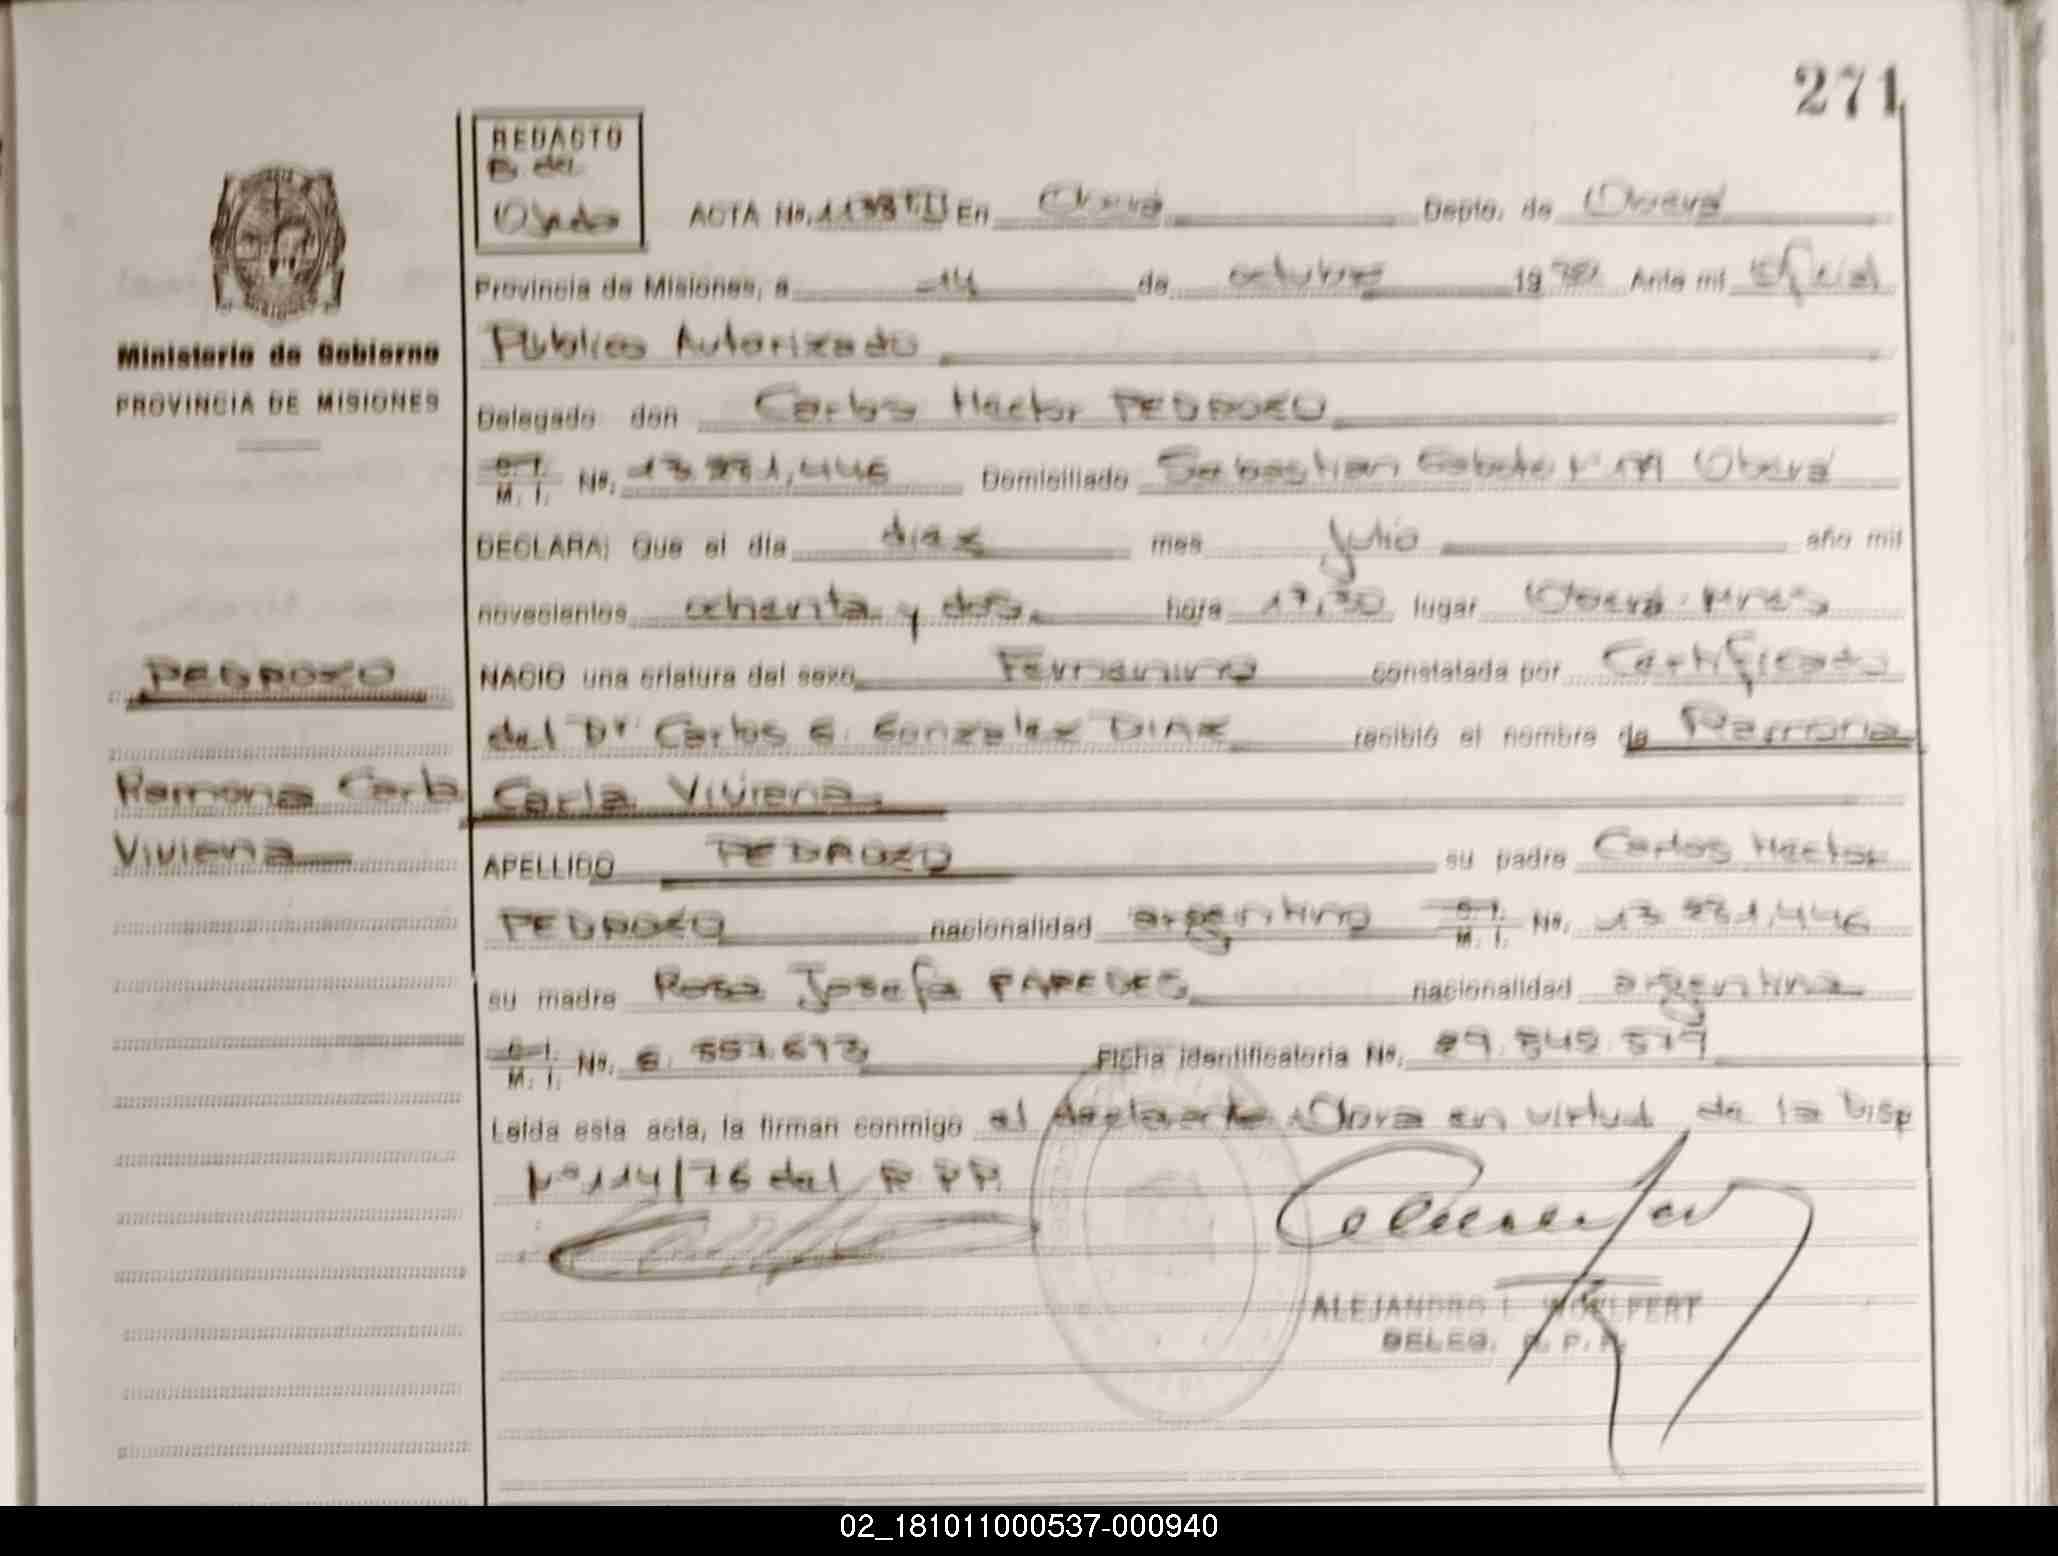 271
REDACTO
B del
ACTA No. En Oberá Depto. de Oberá
Provincia de Misiones, a 14 de octubre 19 Ante mi Oficial
Público Autorizado
Ministerio de Gobierno
PROVINCIA DE MISIONES
Delegado don Carlos Hector PEDROZO
C. I.
M. I. No. 446 Domiciliado Sebastian Gaboto Oberá
DECLARA: Que el día diez mes julio año mil
novecientos ochenta y dos hora 17,30 lugar Oberá Mnes
PEDROZO
NACIO una criatura del sexo Femenino constatada por Certificado
del Dr Carlos G. Gonzalez DIAZ recibió el nombre de Ramona
Ramona Carla
Carla Viviana
Viviana
APELLIDO PEDROZO su padre Carlos Hector
PEDROZO nacionalidad argentino C. I.
M. I. No. 446
su madre Rosa Josefa PAREDES nacionalidad argentina
C. I.
M. I. No. Ficha identificatoria No.
Leída esta acta, la firman conmigo el declarante. Obra en virtud de la Disp
Nº 114/76 del R P P.
ALEJANDRO L. WOELFERT
DELEG. R. P. P.
02_181011000537-000940